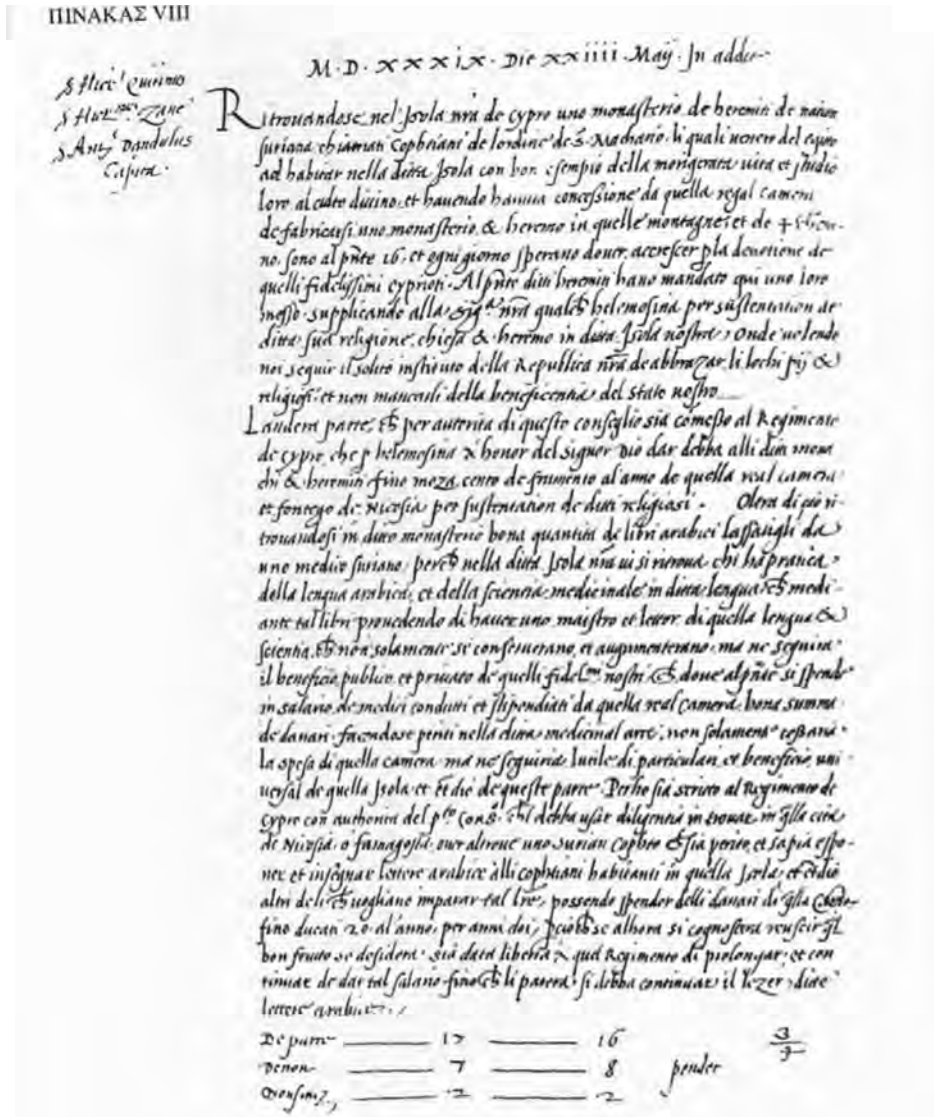 ΠΙΝΑΚΑΣ VIII
M·D·xxxix· Die xxiiii·Maij· In addit
s Hier.º Quirino
s Hier.mo Zane
s Ant.º Dandulus
Capita.
Ritrovandose nel· Isola nra de cypro uno monasterio de heremiti de nation
suriana chiamati Cophtiani de lordine de S. Machario· li quali venero del egitto
ad habitar nella ditta Isola con bon esempio della morigerata vita et studio
loro al culto divino, et havendo havuta concessione da quella regal camera
de fabricarsi uno monasterio & heremo in quelle montagne, et de
no, sono al pnte 16, et ogni giorno sperano dover accrescer p la devotione de
quelli fidelissimi cyprioti· Al pnte ditti heremiti hano mandato qui uno loro
messo supplicando alla Sigria nra qualch helemosina per sustentation de
ditta sua religione, chiesa & heremo in ditta Isola nostra, Onde volendo
noi seguir il solito instituto della Republica nra de abbrazar li lochi pij &
religiosi, et non mancarli della beneficentia del stato nostro
Landera parte, ch per autorita di questo conseglio sia comesso al Regimento
de cypro, che p helemosina & honor del signor Dio dar debba alli ditti mona
chi & heremiti fino moza cento de frumento al anno de quella real camera
et fontego de Nicosia per sustentation de ditti religiosi. Oltra di cio ri-
trovandosi in ditto monasterio bona quantita de libri arabici lassatigli da
uno medico suriano, perch nella ditta Isola nra vi si ritrova chi ha pratica
della lengua arabica, et della scientia medicinale in ditta lengua, ch medi-
ante tal libri provedendo di haver uno maistro et lettor di quella lengua &
scientia, ch non solamente si conserverano, et augumenterano, ma ne seguira
il beneficio publico et privato de quelli fidel.mi nostri & dove al pnte si spende
in salario de medici condutti et stipendiati da quella real camera bona summa
de danari· facendose periti nella ditta medicinal arte, non solamente cessaria
la spesa di quella camera ma ne seguiria lutile di particulari et beneficio uni-
versal de quella Isola et de queste parte· Perho sia scritto al Regimento de
cypro con authorita del p.to Cons.º chel debba usar diligentia in trovar in qlla cita
de Nicosia, o famagosta, over altrove uno surian cophto ch sia perito, et sapia espo-
ner et insegnar lettere arabice alli cophtiani habitanti in quella Isola, et
altri deli ch voghano imparar tal lre, possendo spender delli danari di qlla
fino ducati 20 al anno, per anni doi, se alhora si cognoscera reuscir ql
bon frutto se desidera· sia data liberta a quel Regimento di prolongar, et con
tinuar de dar tal salario fino ch li parera si debba continuar il lezer ditte
lettere arabice
De parte — 17 — 16
De non — 7 — 8 pender 3/3
Non sinc.e — 2 — 2